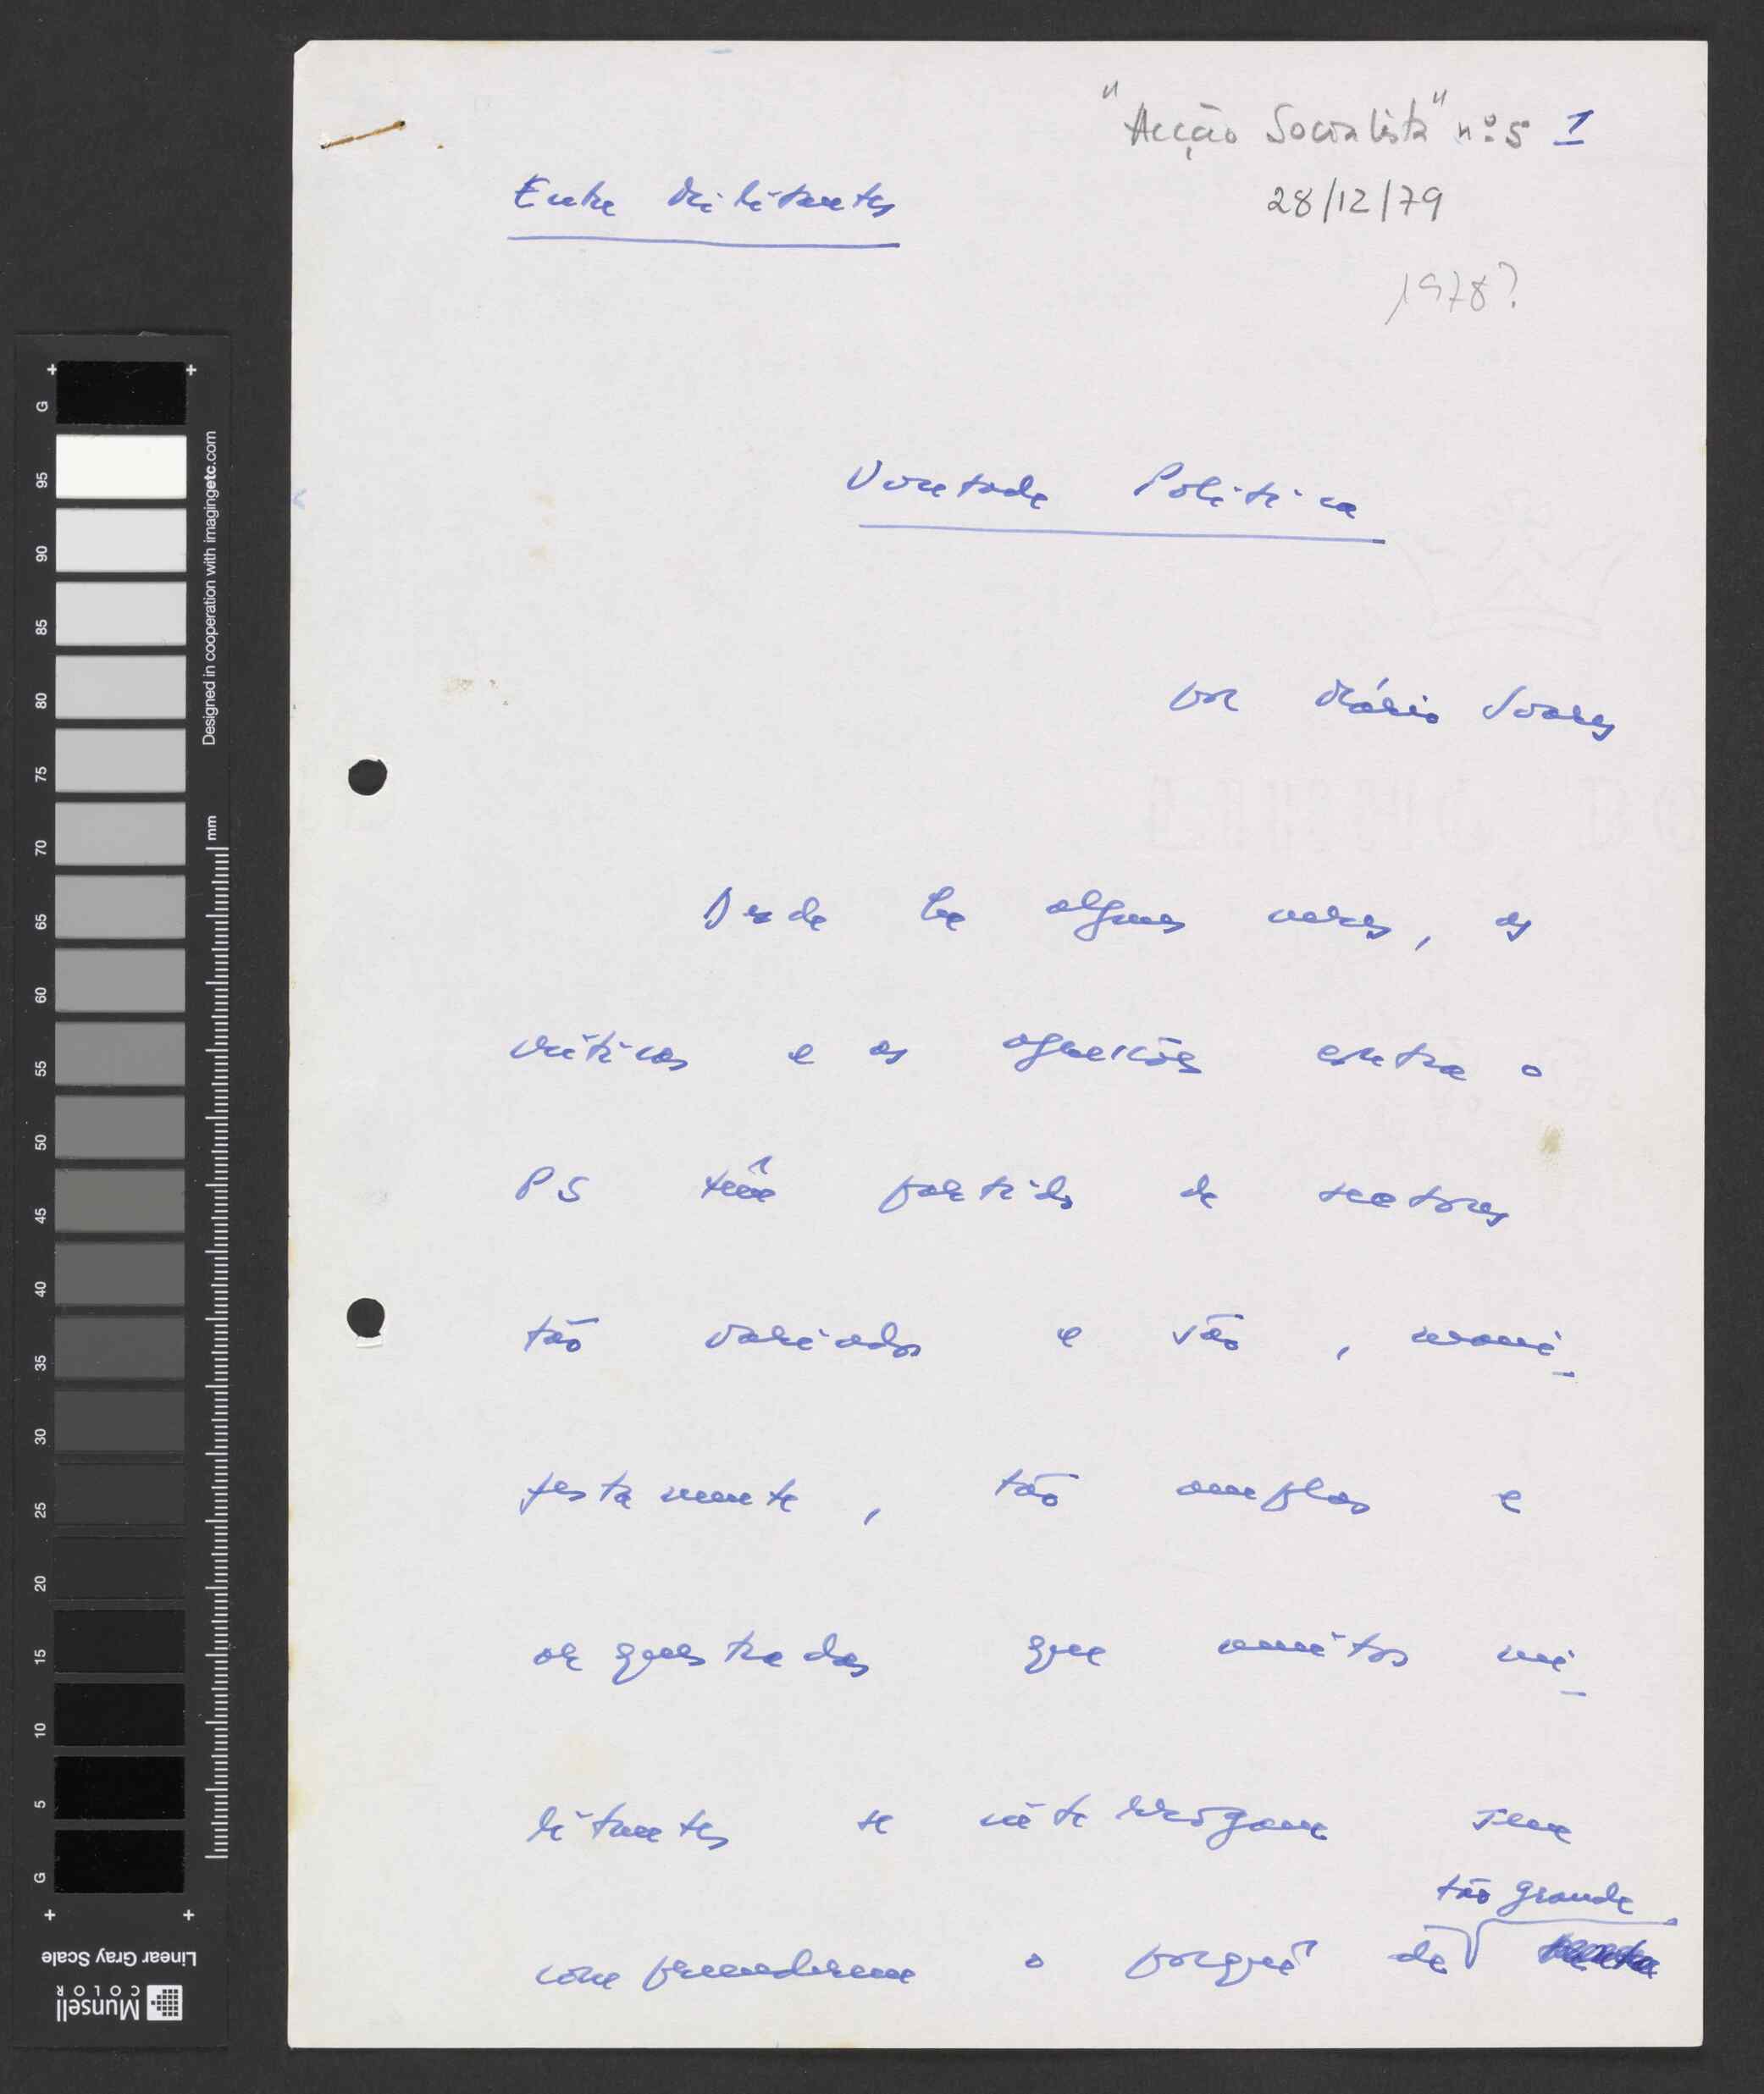 "Acção Socialista" nº 5 1
Entre Militantes
28/12/79
1978?
Vontade Política
por Mário Soares
Desde há alguns meses, as
críticas e as agressões contra o
PS têm partido de sectores
tão variados e são, mani-
festamente, tão amplas e
orquestradas que muitos mi-
litantes se interrogam sem
tão grande
compreenderem o porquê de
G
95
90
85
80
75
70
65
60
55
50
45
40
35
30
25
20
15
10
5
G
Designed in cooperation with imagingetc.com
mm
Linear Gray Scale
Munsell
COLOR